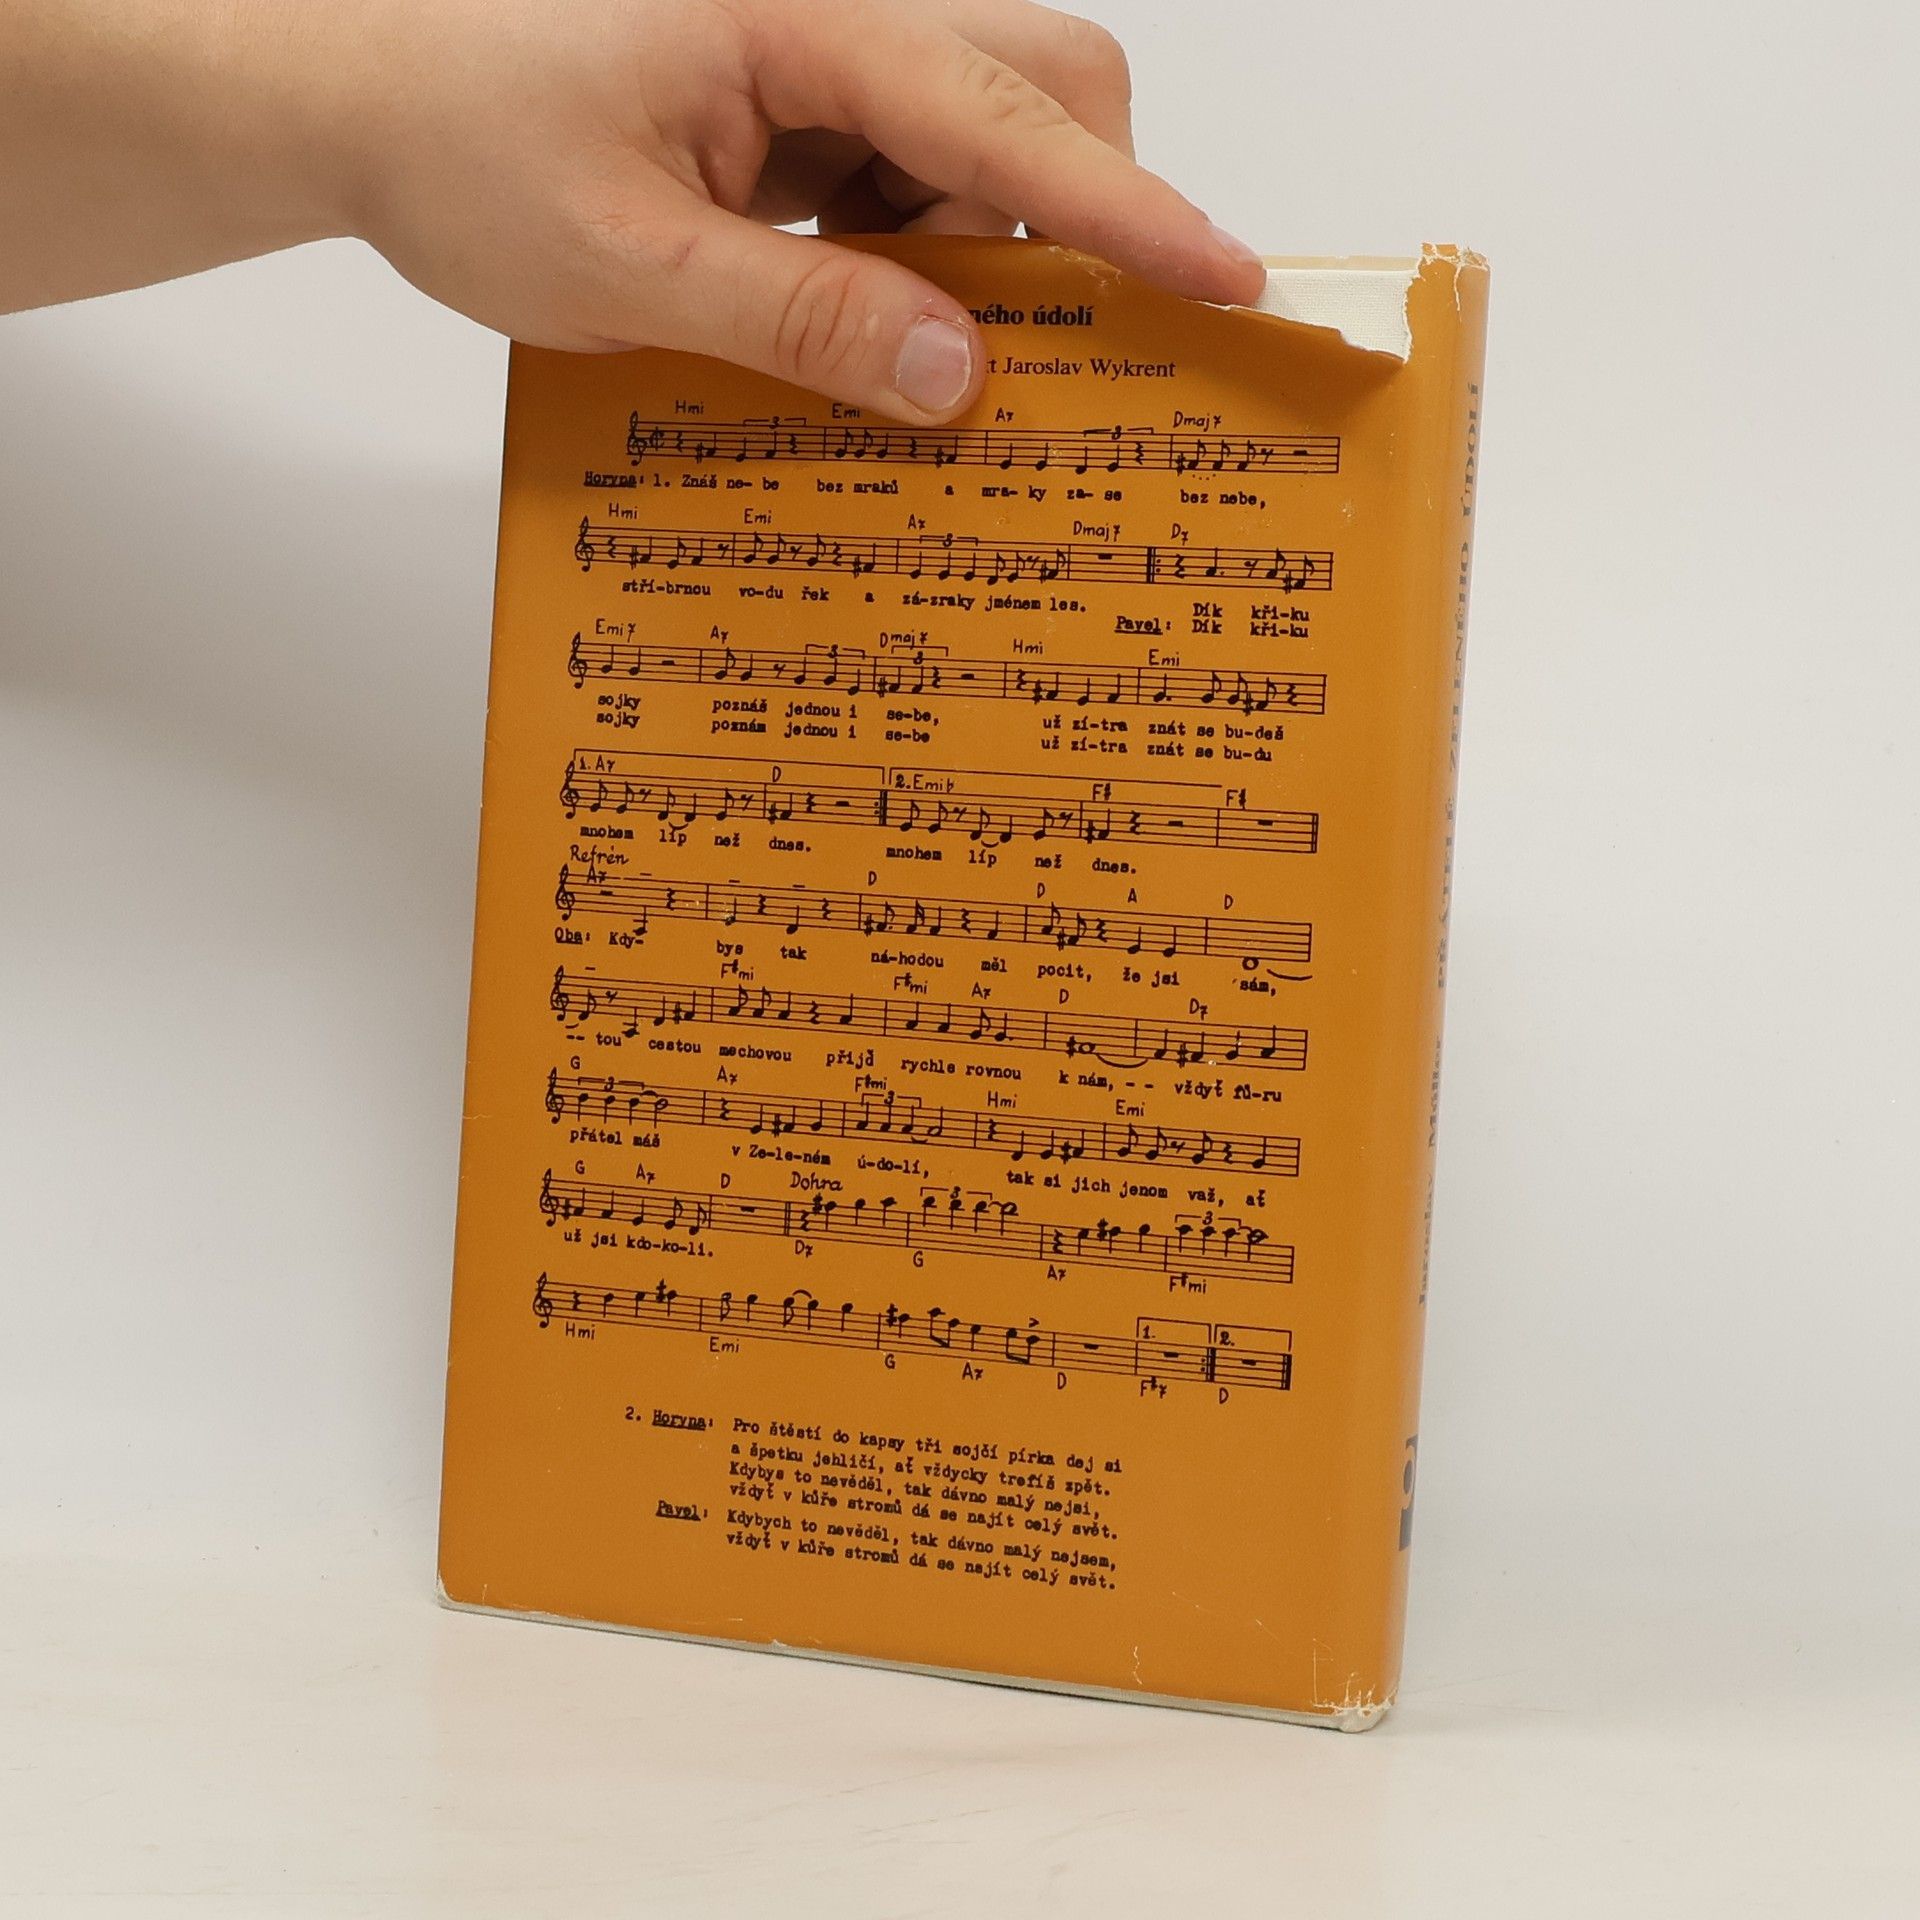 ného údolí
Jaroslav Wykrent
Hmi Emi A7 Dmaj7
3 3
Horyna: 1. Znáš ne- be bez mraků a mra- ky za- se bez nebe,
Hmi Emi A7 Dmaj7 D7
3
stří-brnou vo-du řek a zá-zraky jménem les. Dík kři-ku
Pavel: Dík kři-ku
Emi7 A7 Dmaj7 Hmi Emi
3 3
sojky poznáš jednou i se-be, už zí-tra znát se bu-deš
sojky poznám jednou i se-be už zí-tra znát se bu-du
1. A7 D 2. Emi F# F#
mnohem líp než dnes. mnohem líp než dnes.
Refrén
A7 D D A D
Oba: Kdy- bys tak ná-hodou měl pocit, že jsi sám,
F#mi F#mi A7 D D7
-- tou cestou mechovou přijď rychle rovnou k nám, - - vždyť fů-ru
G A7 F#mi Hmi Emi
3 3
přátel máš v Ze-le-ném ú-do-lí, tak si jich jenom važ, ať
G A7 D Dohra
3 3
už jsi kdo-ko-li. D7 G A7 F#mi
1. 2.
Hmi Emi G A7 D F#7 D
2. Horyna: Pro štěstí do kapsy tři sojčí pírka dej si
a špetku jehličí, ať vždycky trefíš zpět.
Kdybys to nevěděl, tak dávno malý nejsi,
vždyť v kůře stromů dá se najít celý svět.
Pavel: Kdybych to nevěděl, tak dávno malý nejsem,
vždyť v kůře stromů dá se najít celý svět.
Jaroslav Müller PŘÁTELÉ ZELENÉHO ÚDOLÍ